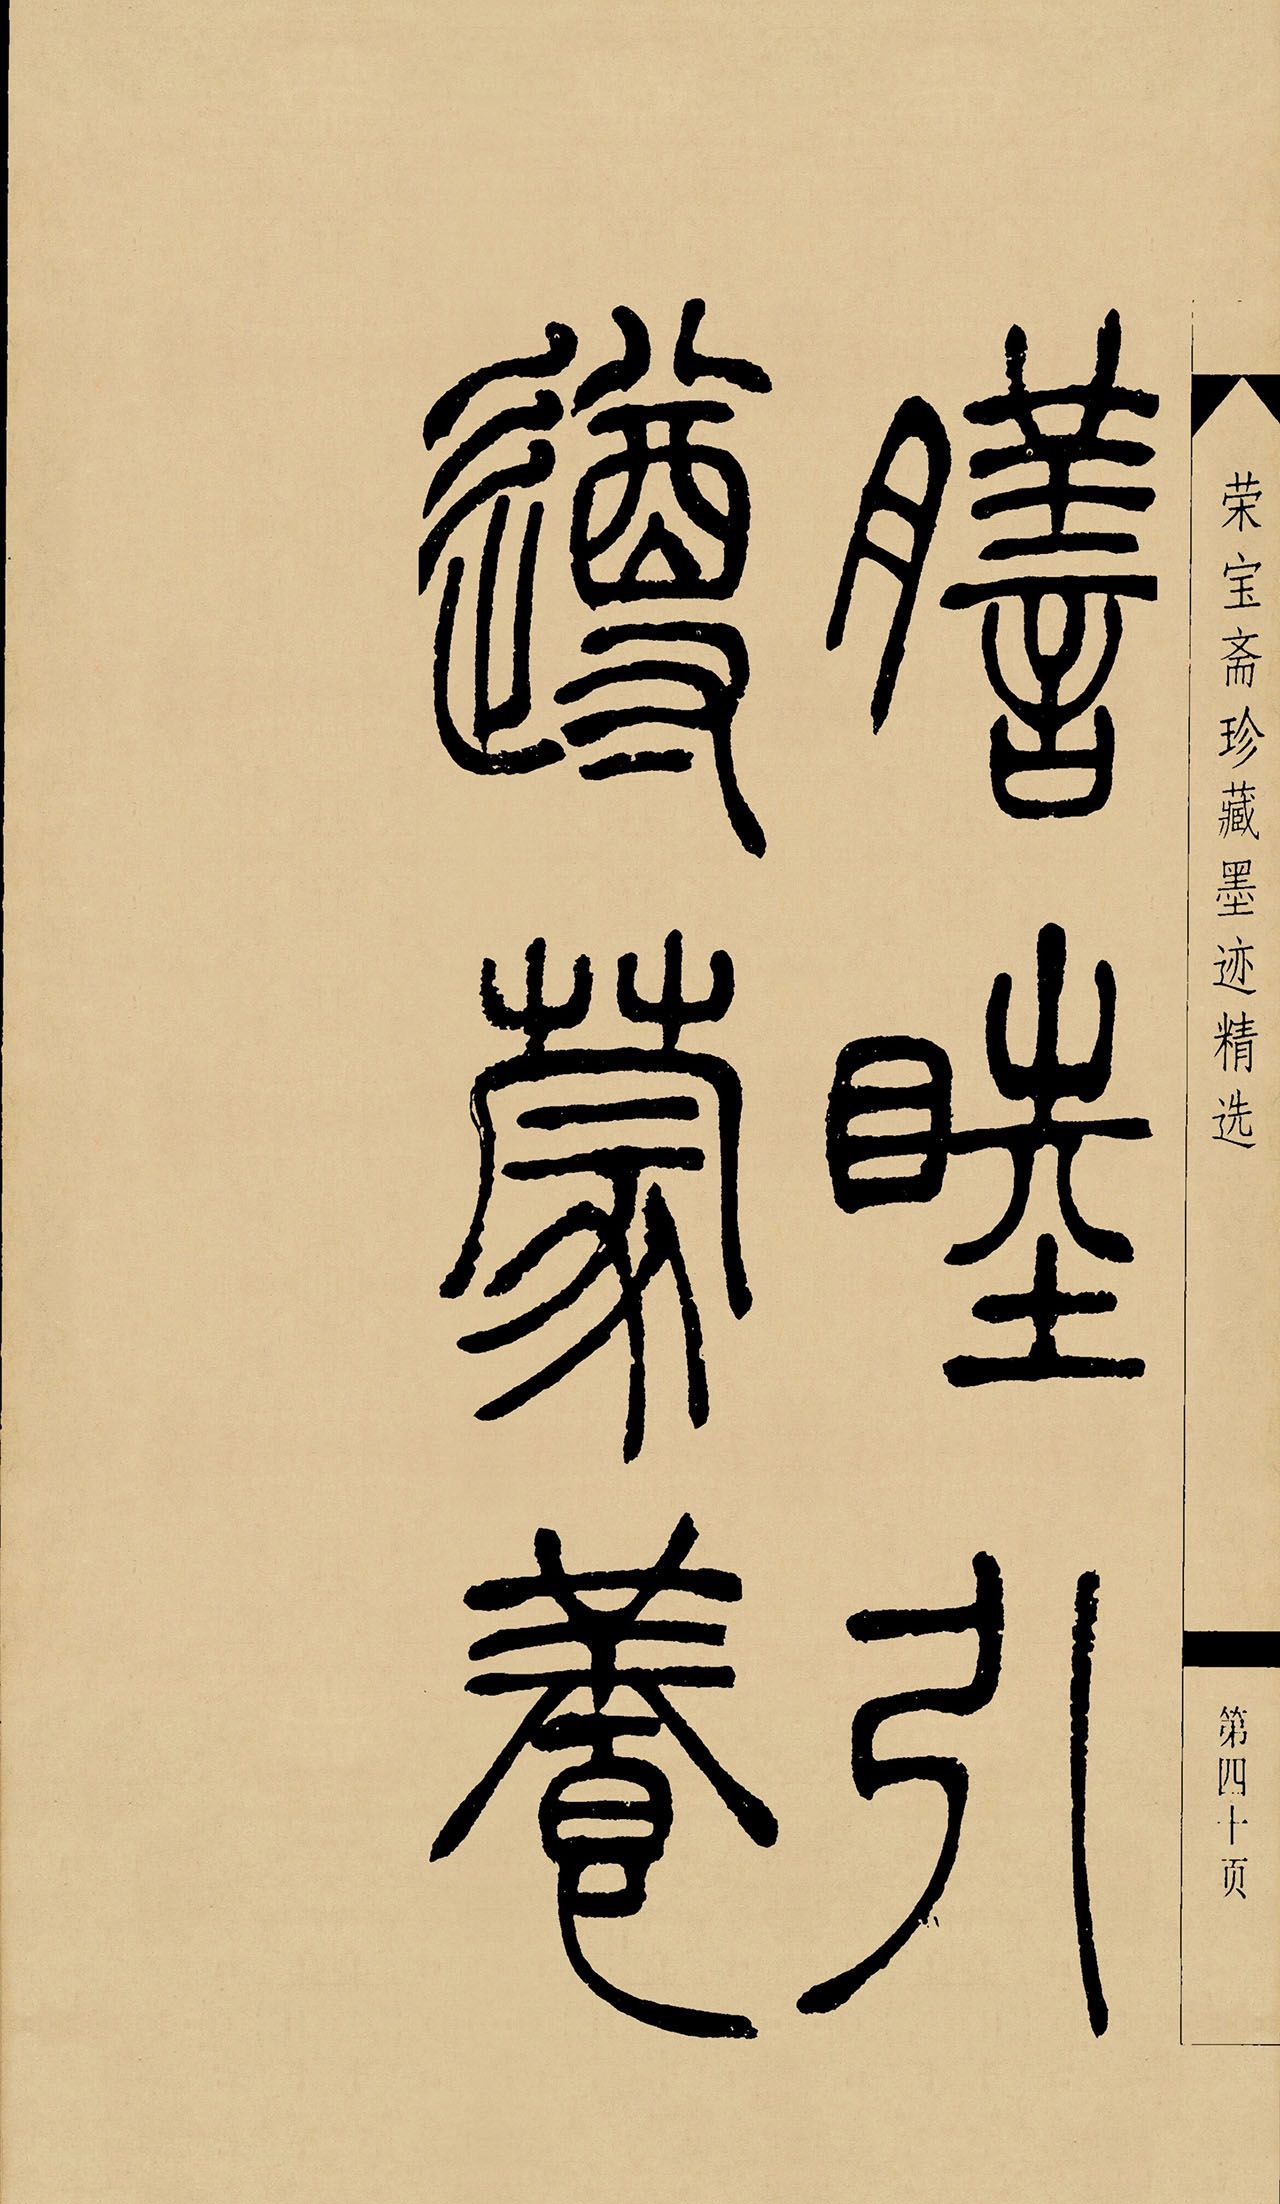 荣宝斋珍藏墨迹精选
第四十页
膳睦引
遵蒙養